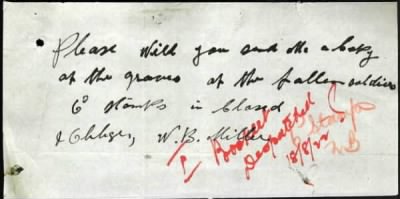 Please Will you send Me a Copy
of the graves of the fallen soldiers
6ᵈ stamps in Closed
& Oblige, W. B. Miller
1 Booklet
Despatched
18/8/22
Stamps
WB